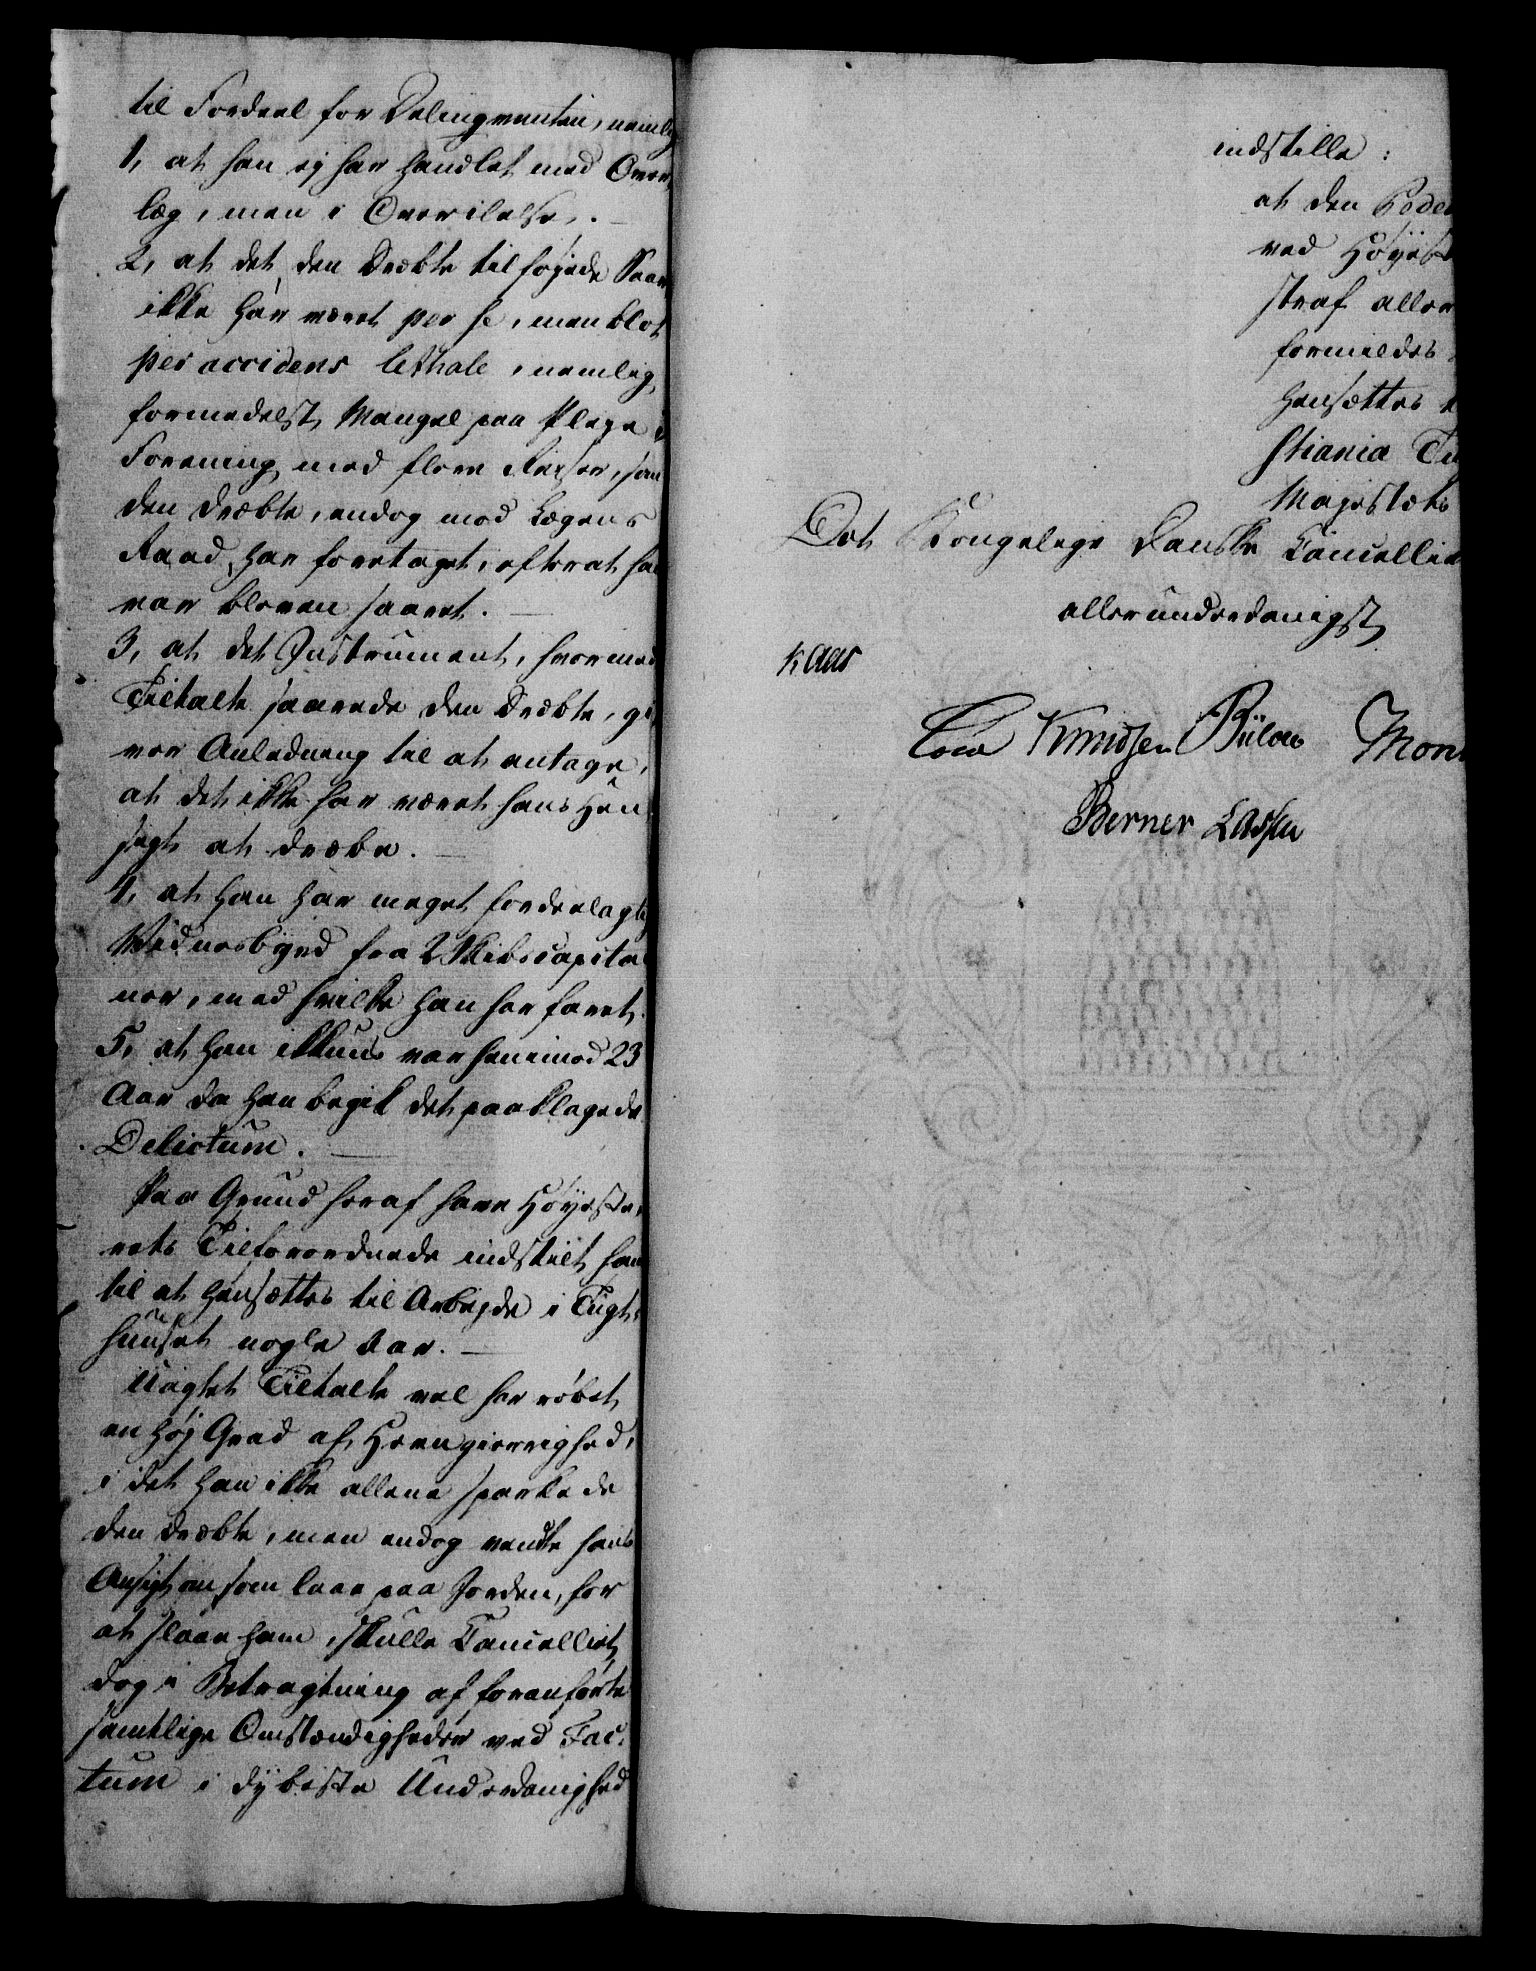 til Fordeel for Delinqventen, nemlig
1, at han ej har handlet med Over,
læg, men i Overilelse,. —
2, at det den Dræbte tilføjede Saar
ikke har været per se, men blot
per accidens lethale, nemlig
formedelst Mangel paa Pleje i
Forening med flere Rejser, som
den Dræbte, endog mod Lægens
Raad, har foretaget, efterat han
var bleven saaret. —
3, at det Instrument, hvormed
Tiltalte saarede den Dræbte, gi,
ver Anledning til at antage,
at det ikke har været hans Hen,
sigt at dræbe. —
4, at han har meget fordeelagtig
Vidnesbyrd fra 2 Skibscapitai
ner, med hvilke han har faret.
5, at han ikkuns var henimod 23
Aar da han begik det paaklagede
Delictum. —
Paa Grund heraf have Høyeste,
rets Tilforordnede indstilt ham
til at hensættes til Arbejde i Tugt,
huuset nogle Aar. —
Uagtet Tiltalte vel har røbet
en høj Grad af Hevngierrighed,
i det han ikke allene sparkede
den Dræbte, men endog vendte hans
Ansigt om som laae paa Jorden, for
at slaae ham, skulle Cancelliet
dog i Betragtning af foranførte
samtlige Omstændigheder ved Fac,
tum i dybeste Underdanighed
indstille:
at den
ved Høyeste
straf aller
formildes
hensættes
stiania Tu
Majestæts
Det Kongelige Danske Cancellie
allerunderdanigst
Kaas
Cold Knudsen Bülow Mon
Berner Lassen